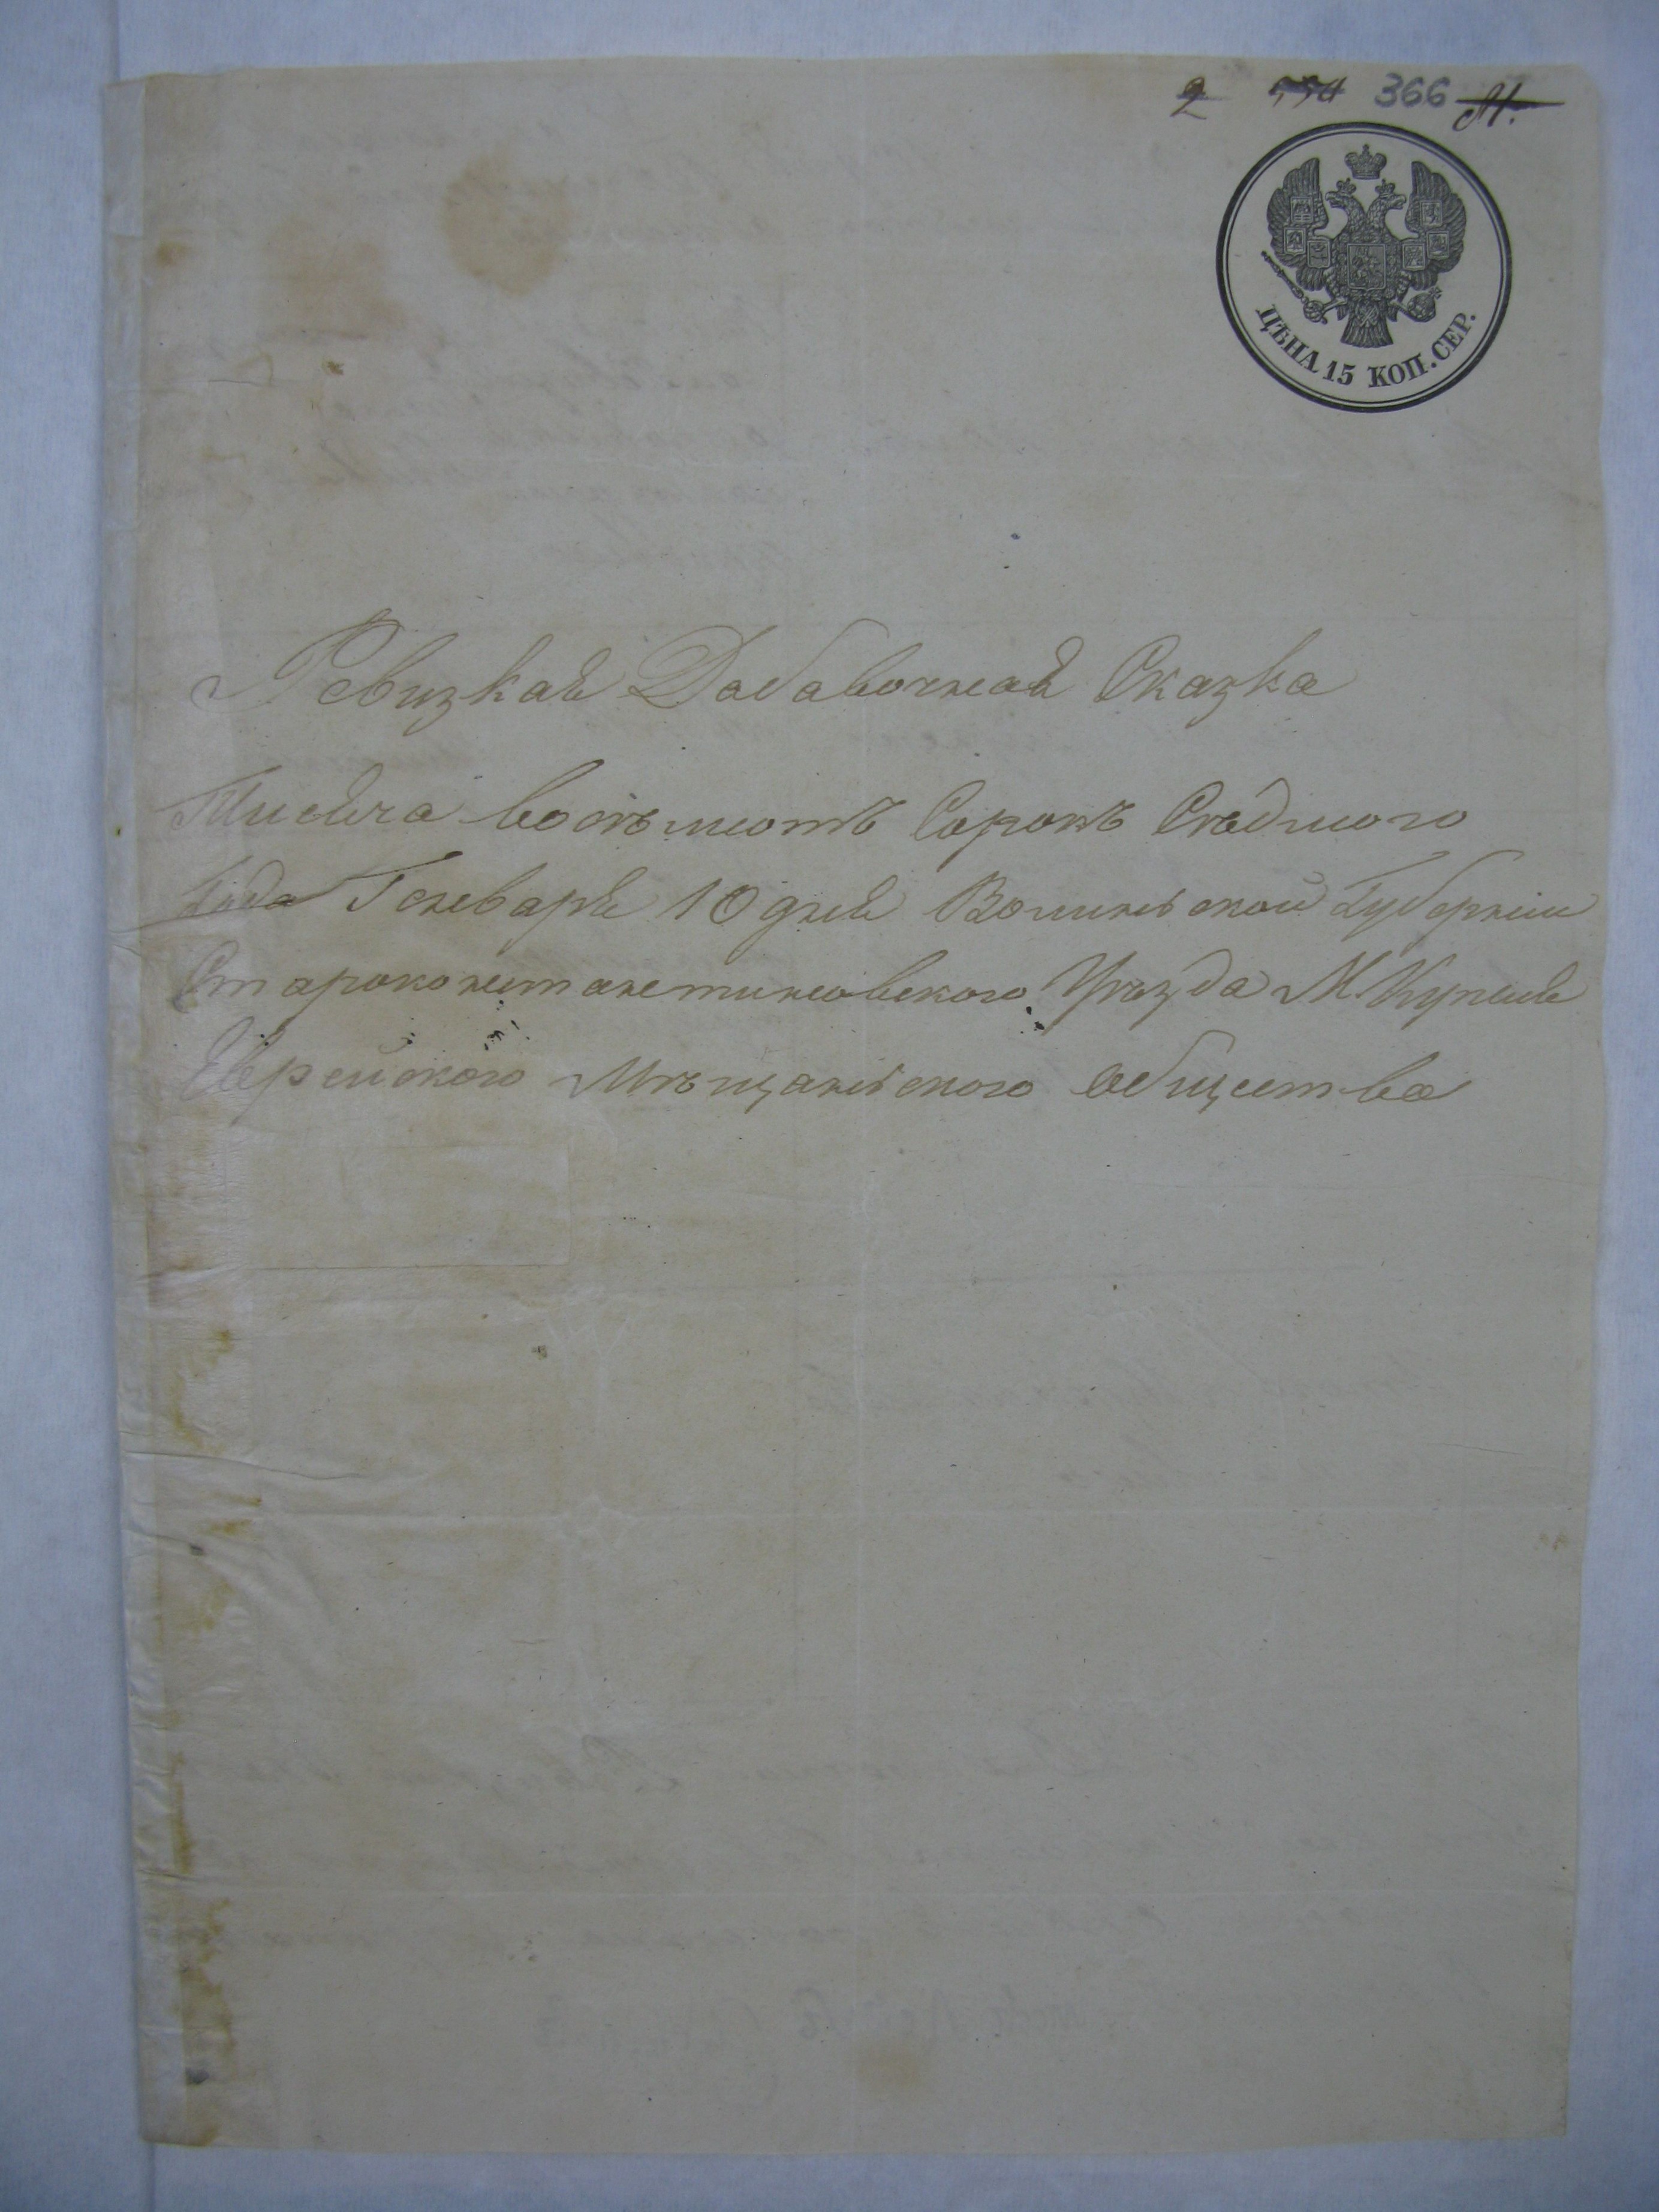 2 554 366
ЦѢНА 15 КОП. СЕР.
Ревизкая Добавочная Сказка
Тисяча восъмсотъ Сорокъ Съдмого
Года Генваря 10 дня Волинской Губерніи
Староконстантиновского Уѣзда М. Купеля
Еврейского Мѣщанского общества